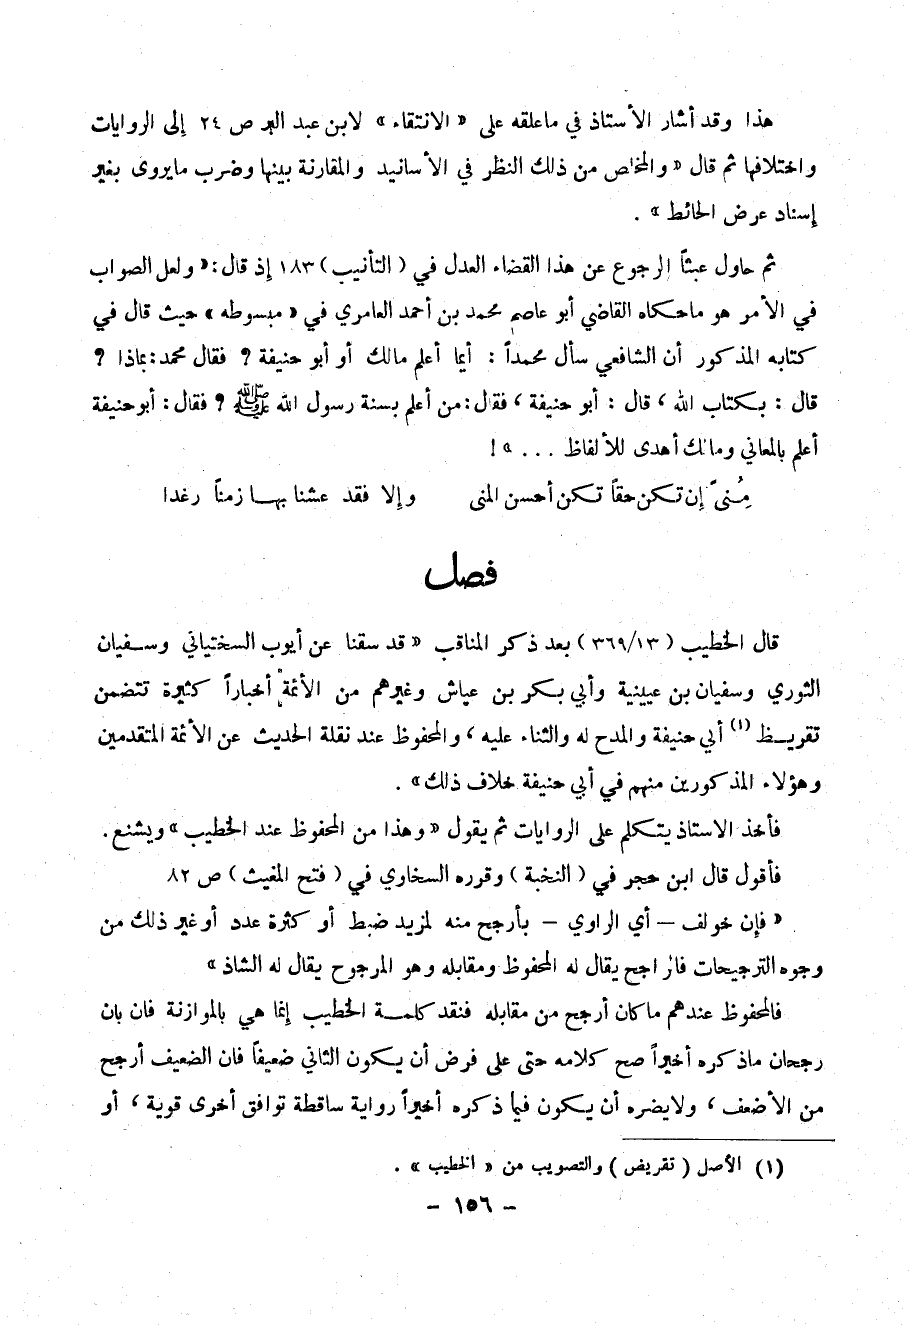 هذا وقد أشار الأستاذ في ماعلقه على « الانتقاء » لابن عبد البر ص ٢٤ إلى الروايات
واختلافها ثم قال « والمخلص من ذلك النظر في الأسانيد والمقارنة بينها وضرب مايروى بغير
إسناد عرض الحائط » .
ثم حاول عبثاً الرجوع عن هذا القضاء العدل في ( التأنيب ) ١٨٣ إذ قال : « ولعل الصواب
في الأمر هو ماحكاه القاضي أبو عاصم محمد بن أحمد العامري في « مبسوطه » حيث قال في
كتابه المذكور أن الشافعي سأل محمداً : أيما أعلم مالك أو أبو حنيفة ؟ فقال محمد : بماذا ؟
قال : بكتاب الله ، قال : أبو حنيفة ، فقال : من أعلم بسنة رسول الله ﷺ ؟ فقال : أبو حنيفة
أعلم بالمعاني ومالك أهدى للألفاظ . . . » !
مِنىً إن تكن حقاً تكن أحسن المنى وإلا فقد عشنا بها زمناً رغدا
فصل
قال الخطيب ( ٣٦٩/١٣ ) بعد ذكر المناقب « قد سقنا عن أيوب السختياني وسفيان
الثوري وسفيان بن عيينية وأبي بكر بن عياش وغيرهم من الأئمة أخباراً كثيرة تتضمن
تقريظ (١) أبي حنيفة والمدح له والثناء عليه ، والمحفوظ عند نقلة الحديث عن الأئمة المتقدمين
وهؤلاء المذكورين منهم في أبي حنيفة خلاف ذلك » .
فأخذ الاستاذ يتكلم على الروايات ثم يقول « وهذا من المحفوظ عند الخطيب » ويشنع .
فأقول قال ابن حجر في ( النخبة ) وقرره السخاوي في ( فتح المغيث ) ص ٨٢
« فإن خولف – أي الراوي – بأرجح منه لمزيد ضبط أو كثرة عدد أو غير ذلك من
وجوه الترجيحات فالراجح يقال له المحفوظ ومقابله وهو المرجوح يقال له الشاذ »
فالمحفوظ عندهم ماكان أرجح من مقابله فنقد كلمة الخطيب إنما هي بالموازنة فان بان
رجحان ماذكره أخيراً صح كلامه حتى على فرض أن يكون الثاني ضعيفاً فان الضعيف أرجح
من الأضعف ، ولايضره أن يكون فيما ذكره أخيراً رواية ساقطة توافق أخرى قوية ، أو
(١) الأصل ( تقريض ) والتصويب من « الخطيب » .
- ١٥٦ -